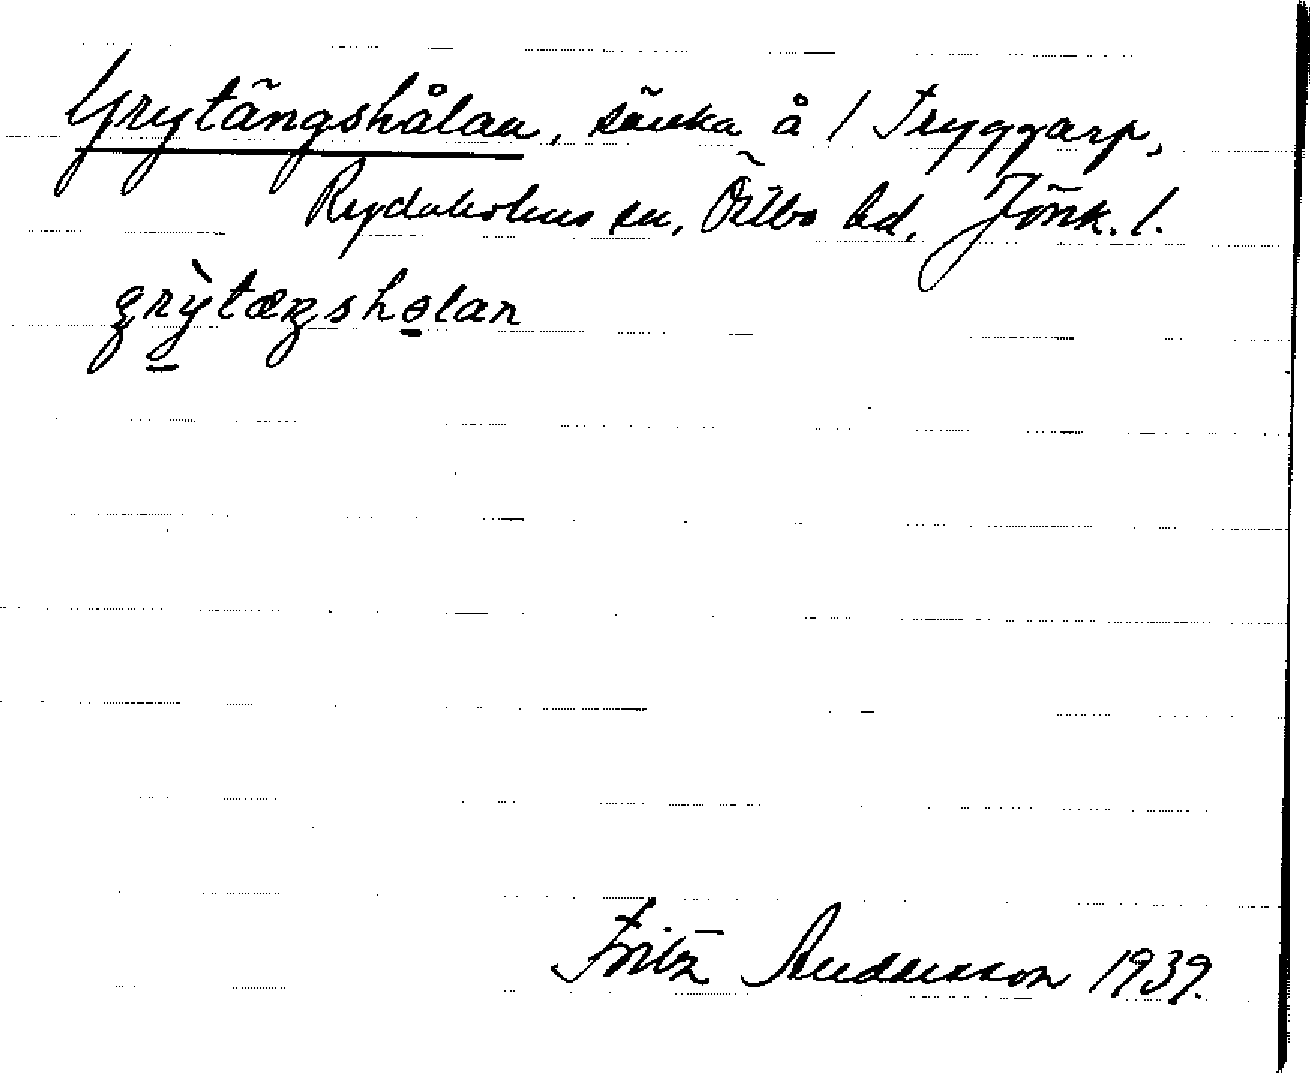 Grytängshålan, sänka å / Tryggarp,
Rydaholms sn, Östbo hd, Jönk. l.
grỳtæŋshølan
Fritz Andersson 1939.